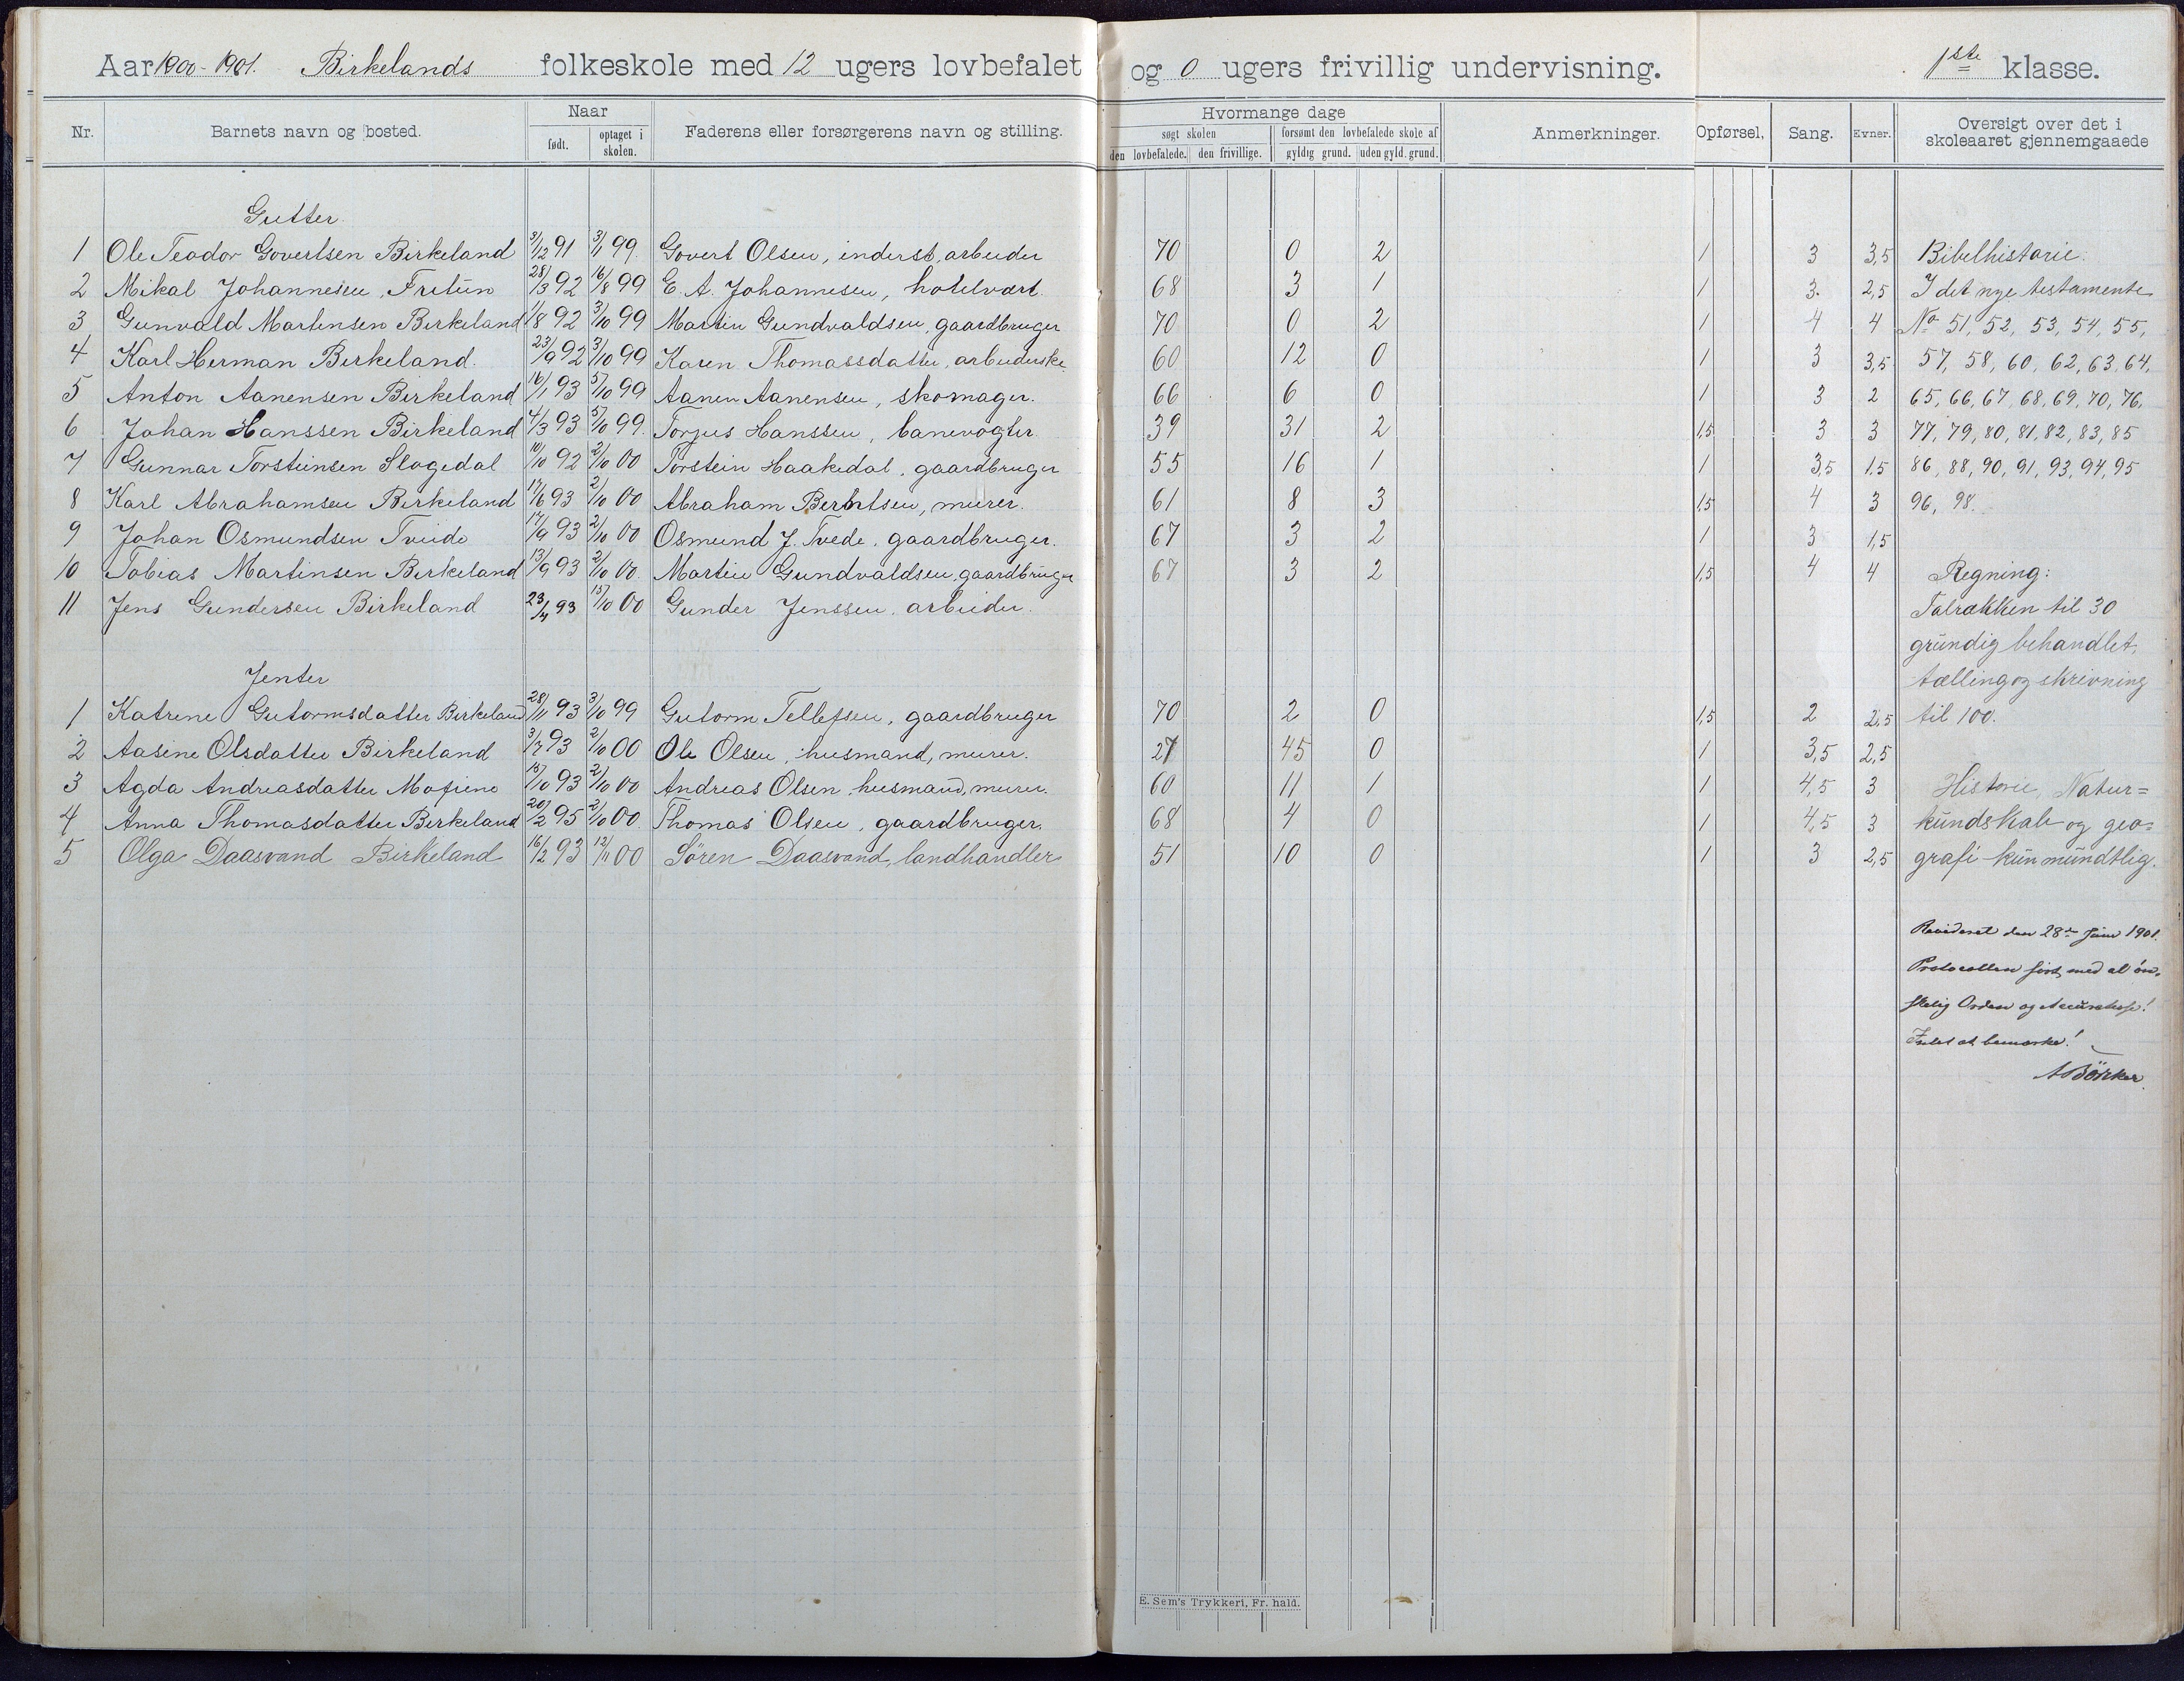 Aar 1900-1901. Birkelands folkeskole med 12 ugers lovbefalet og 0 ugers frivillig undervisning. 1ste klasse.
Nr. Barnets navn og bosted. Naar Faderens eller forsørgerens navn og stilling. Hvormange dage Anmerkninger. Opførsel. Sang. Evner. Oversigt over det i skoleaaret gjennemgaaede
født. optaget i skolen. søgt skolen forsømt den lovbefalede skole af
den lovbefalede. den frivillige. gyldig grund. uden gyld. grund.
Gutter.
1 Ole Teodor Govertsen Birkeland 3/12 91 3/11 99. Govert Olsen, inderst, arbeider 70 0 2 1 3 3,5 Bibelhistorie.
2 Mikal Johannesen, Fritun 28/3 92 16/8 99 E. A. Johannesen, hotelvært. 68 3 1 1 3. 2,5 I det nye testamente
3 Gunvald Martinsen Birkeland 1/8 92 3/10 99 Martin Gundvaldsen, gaardbruger 70 0 2 1 4 4 No 51, 52, 53, 54, 55,
4 Karl Herman Birkeland. 23/9 92 3/10 99 Karen Thomassdatter, arbeiderske 60 12 0 1 3 3,5 57, 58, 60, 62, 63, 64,
5 Anton Aanensen Birkeland 16/1 93 5/10 99 Aanen Aanensen, skomager. 66 6 0 1 3 2 65, 66, 67, 68, 69, 70, 76,
6 Johan Hanssen Birkeland 4/3 93 5/10 99. Torjus Hanssen, banevogter. 39 31 2 1,5 3 3 77, 79, 80, 81, 82, 83, 85
7 Gunnar Torsteinsen Slogedal 10/10 92 2/10 00 Torstein Haakedal, gaardbruger 55 16 1 1 3,5 1,5 86, 88, 90, 91, 93, 94, 95
8 Karl Abrahamsen Birkeland 17/6 93 2/10 00 Abraham Berntsen, murer. 61 8 3 1,5 4 3 96, 98.
9 Johan Osmundsen Tveide 17/9 93 2/10 00 Osmund J. Tvede, gaardbruger. 67 3 2 1 3 1,5
10 Tobias Martinsen Birkeland 13/9 93 2/10 00. Martin Gundvaldsen, gaardbruger 67 3 2 1,5 4 4 Regning:
11 Jens Gundersen Birkeland 23/4 93 15/10 00 Gunder Jenssen, arbeider. Talrækken til 30
grundig behandlet,
Jenter tælling og skrivning
1 Katrine Gutormsdatter Birkeland 28/11 93 3/10 99 Gutorm Tellefsen, gaardbruger 70 2 0 1,5 2 2,5 til 100.
2 Aasine Olsdatter Birkeland 3/7 93 2/10 00 Ole Olsen, husmand, murer. 27 45 0 1 3,5 2,5
3 Agda Andreasdatter Mofiene 15/10 93 2/10 00 Andreas Olsen, husmand, murer. 60 11 1 1 4,5 3 Historie, Natur=
4 Anna Thomasdatter Birkeland 20/2 95 2/10 00. Thomas Olsen, gaardbruger. 68 4 0 1 4,5 3 kundskab og geo=
5 Olga Daasvand Birkeland 16/2 93 12/11 00 Sören Daasvand, landhandler 51 10 0 1 3 2,5 grafi kun mundtlig.
Revideret den 28de Juni 1901.
Protocollen ført med al øn=
skelig Orden og Accuratesse!
Intet at bemærke!
E. Sem's Trykkeri, Fr. hald.